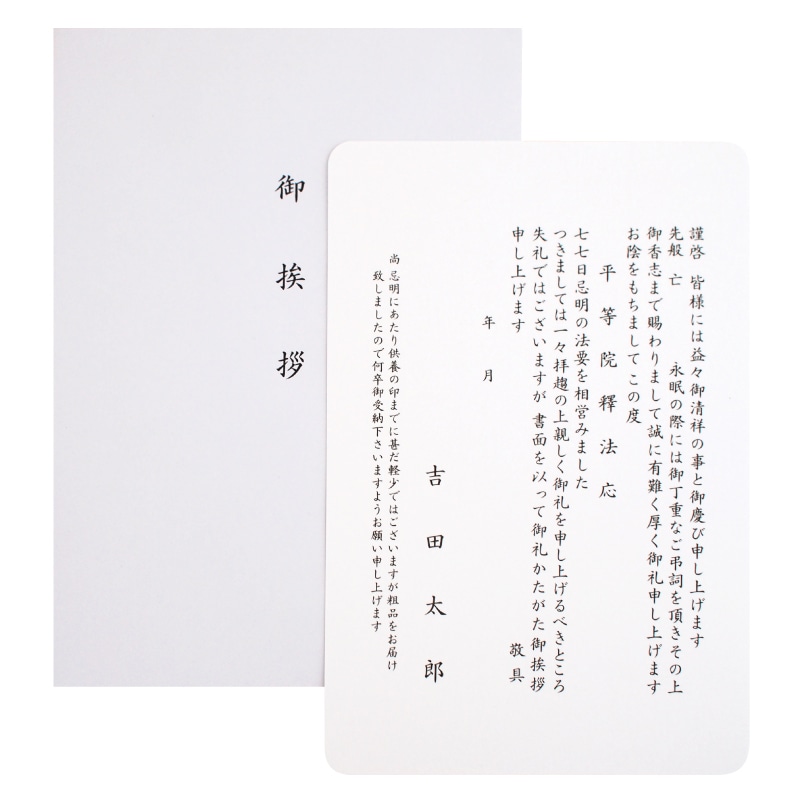 御挨拶
謹啓 皆様には益々御清祥の事と御慶び申し上げます
先般 亡 永眠の際には御丁重なご弔詞を頂きその上
御香志まで賜わりまして誠に有難く厚く御礼申し上げます
お陰をもちましてこの度
平等院釋法応
七七日忌明の法要を相営みました
つきましては一々拝趨の上親しく御礼を申し上げるべきところ
失礼ではございますが 書面を以って御礼かたがた御挨拶
申し上げます 敬具
年 月
吉田太郎
尚 忌明にあたり供養の印までに甚だ軽少ではございますが粗品をお届け
致しましたので何卒御受納下さいますようお願い申し上げます